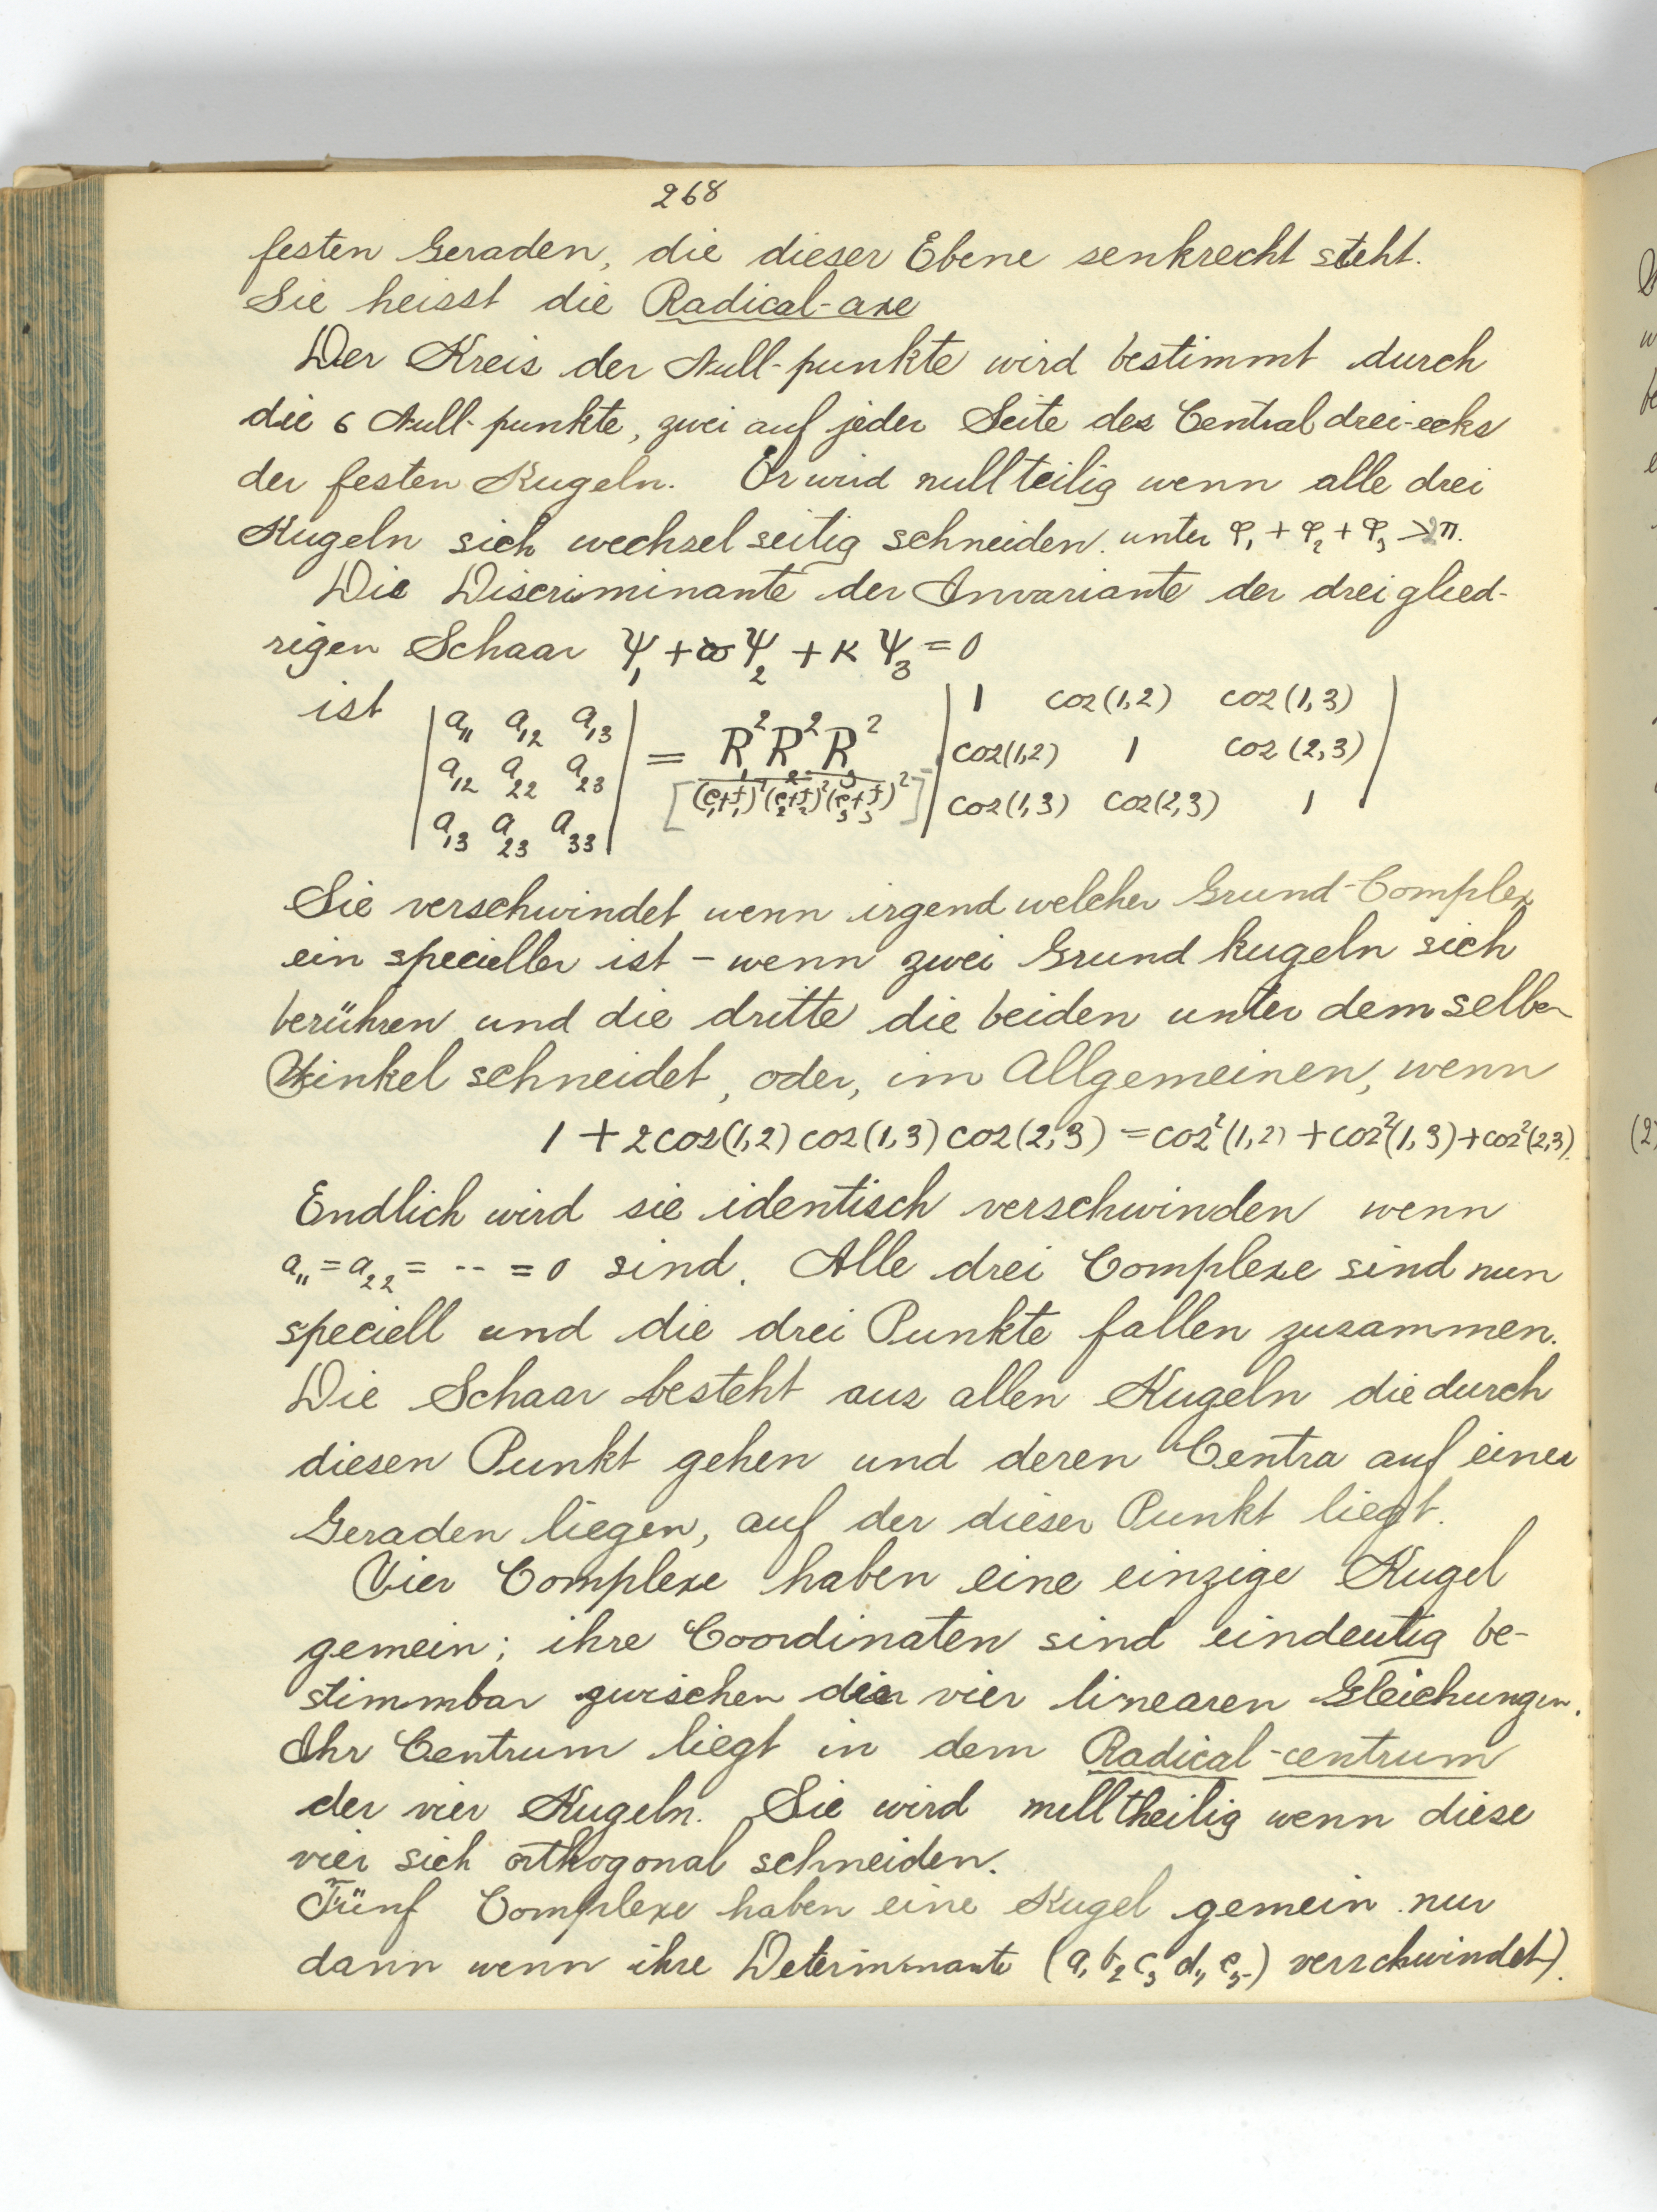 268
festen Geraden, die dieser Ebene senkrecht steht.
Sie heisst die Radical-axe
Der Kreis der Null-punkte wird bestimmt durch
die 6 Null-punkte, zwei auf jeder Seite des Centraldrei-ecks
der festen Kugeln. Er wird nullteilig wenn alle drei
Kugeln sich wechselseitig schneiden. unter φ₁ + φ₂ + φ₃ > π.
Die Discriminante der Invariante der dreiglied-
rigen Schaar Ψ₁ + ϖ Ψ₂ + κ Ψ₃ = 0
ist | a₁₁ a₁₂ a₁₃ | a₁₂ a₂₂ a₂₃ | a₁₃ a₂₃ a₃₃ | = R₁² R₂² R₃² / [(e₁+f₁)² (e₂+f₂)² (e₃+f₃)²] | 1 cos(1,2) cos(1,3) | cos(1,2) 1 cos(2,3) | cos(1,3) cos(2,3) 1 |
Sie verschwindet wenn irgend welcher Grund-Complex
ein specieller ist – wenn zwei Grundkugeln sich
berühren und die dritte die beiden unter demselben
Winkel schneidet, oder, im Allgemeinen, wenn
1 + 2cos(1,2) cos(1,3) cos(2,3) = cos²(1,2) + cos²(1,3) + cos²(2,3).
Endlich wird sie identisch verschwinden wenn
a₁₁ = a₂₂ = -- = 0 sind. Alle drei Complexe sind nun
speciell und die drei Punkte fallen zusammen.
Die Schaar besteht aus allen Kugeln die durch
diesen Punkt gehen und deren Centra auf einer
Geraden liegen, auf der dieser Punkt liegt.
Vier Complexe haben eine einzige Kugel
gemein; ihre Coordinaten sind eindeutig be-
stimmbar zwischen vier linearen Gleichungen.
Ihr Centrum liegt in dem Radical-centrum
der vier Kugeln. Sie wird nulltheilig wenn diese
vier sich orthogonal schneiden.
Fünf Complexe haben eine Kugel gemein nur
dann wenn ihre Determinante (a₁ b₂ c₃ d₄ e₅) verschwindet).